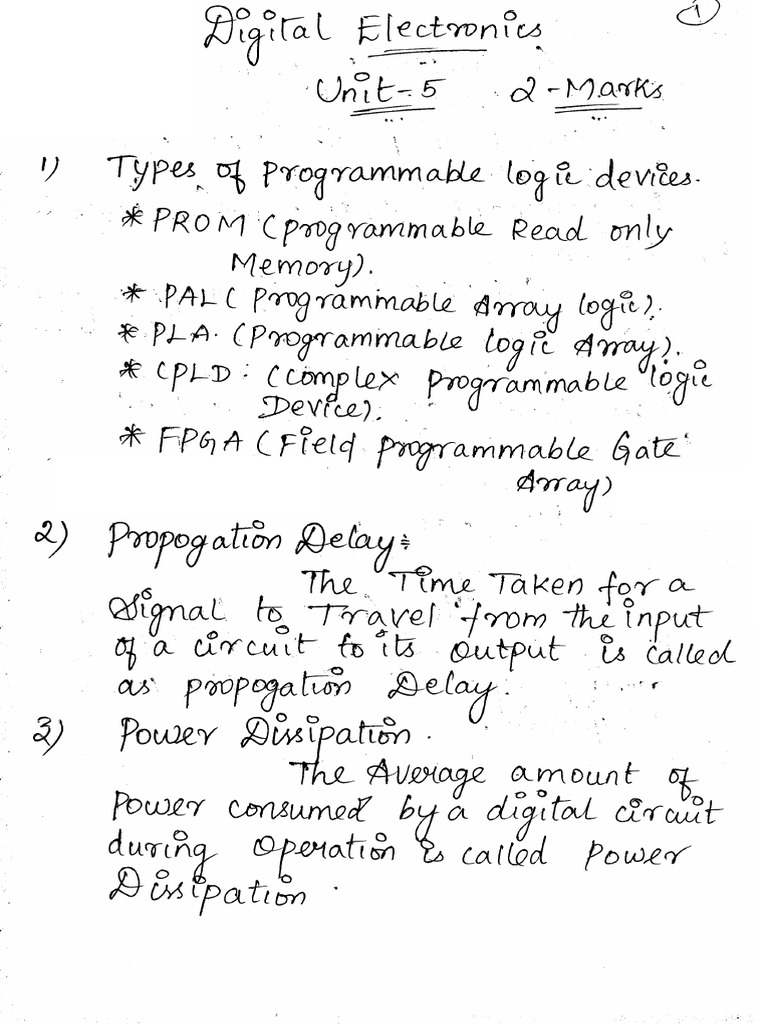 1
Digital Electronics
Unit-5 2-Marks
1) Types of programmable logic devices.
* PROM (programmable Read only
Memory).
* PAL (Programmable Array logic).
* PLA. (Programmable logic Array).
* CPLD: (complex programmable logic
Device).
* FPGA (Field programmable Gate
Array)
2) Propogation Delay:
The Time Taken for a
Signal to Travel from the input
of a circuit to its output is called
as propogation Delay.
3) Power Dissipation.
The Average amount of
Power consumed by a digital circuit
during operation is called power
Dissipation.